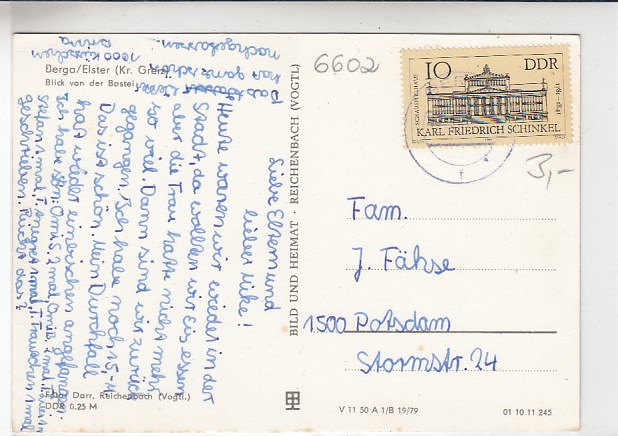 Liebe Eltern und
lieber Mike!
Heute waren wir wieder in der
Stadt, da wollten wir Eis essen
aber die Frau hatte nicht mehr
so viel. Dann sind wir zurück
gegangen. Ich habe noch 15,-M
Das ist schön. Mein Durchfall
hat wieder ein bischen angefangen
Ich habe Omi S. 2 mal, Omi
Stefan 1 mal T. 1 mal T. Trautchen 1 mal
geschrieben. Reicht das?
Das hat
nachgelassen.
1000 Küsschen
Berga/Elster (Kr. Greiz)
Blick von der Bastei
Foto: Darr, Reichenbach (Vogtl.)
DDR 0,25 M
BILD UND HEIMAT · REICHENBACH (VOGTL)
6602
10 DDR
SCHAUSPIELHAUS
KARL FRIEDRICH SCHINKEL
3,-
Fam.
J. Fähse
1500 Potsdam
Stormstr. 24
V 11 50 A 1/B 19/79
01 10 11 245